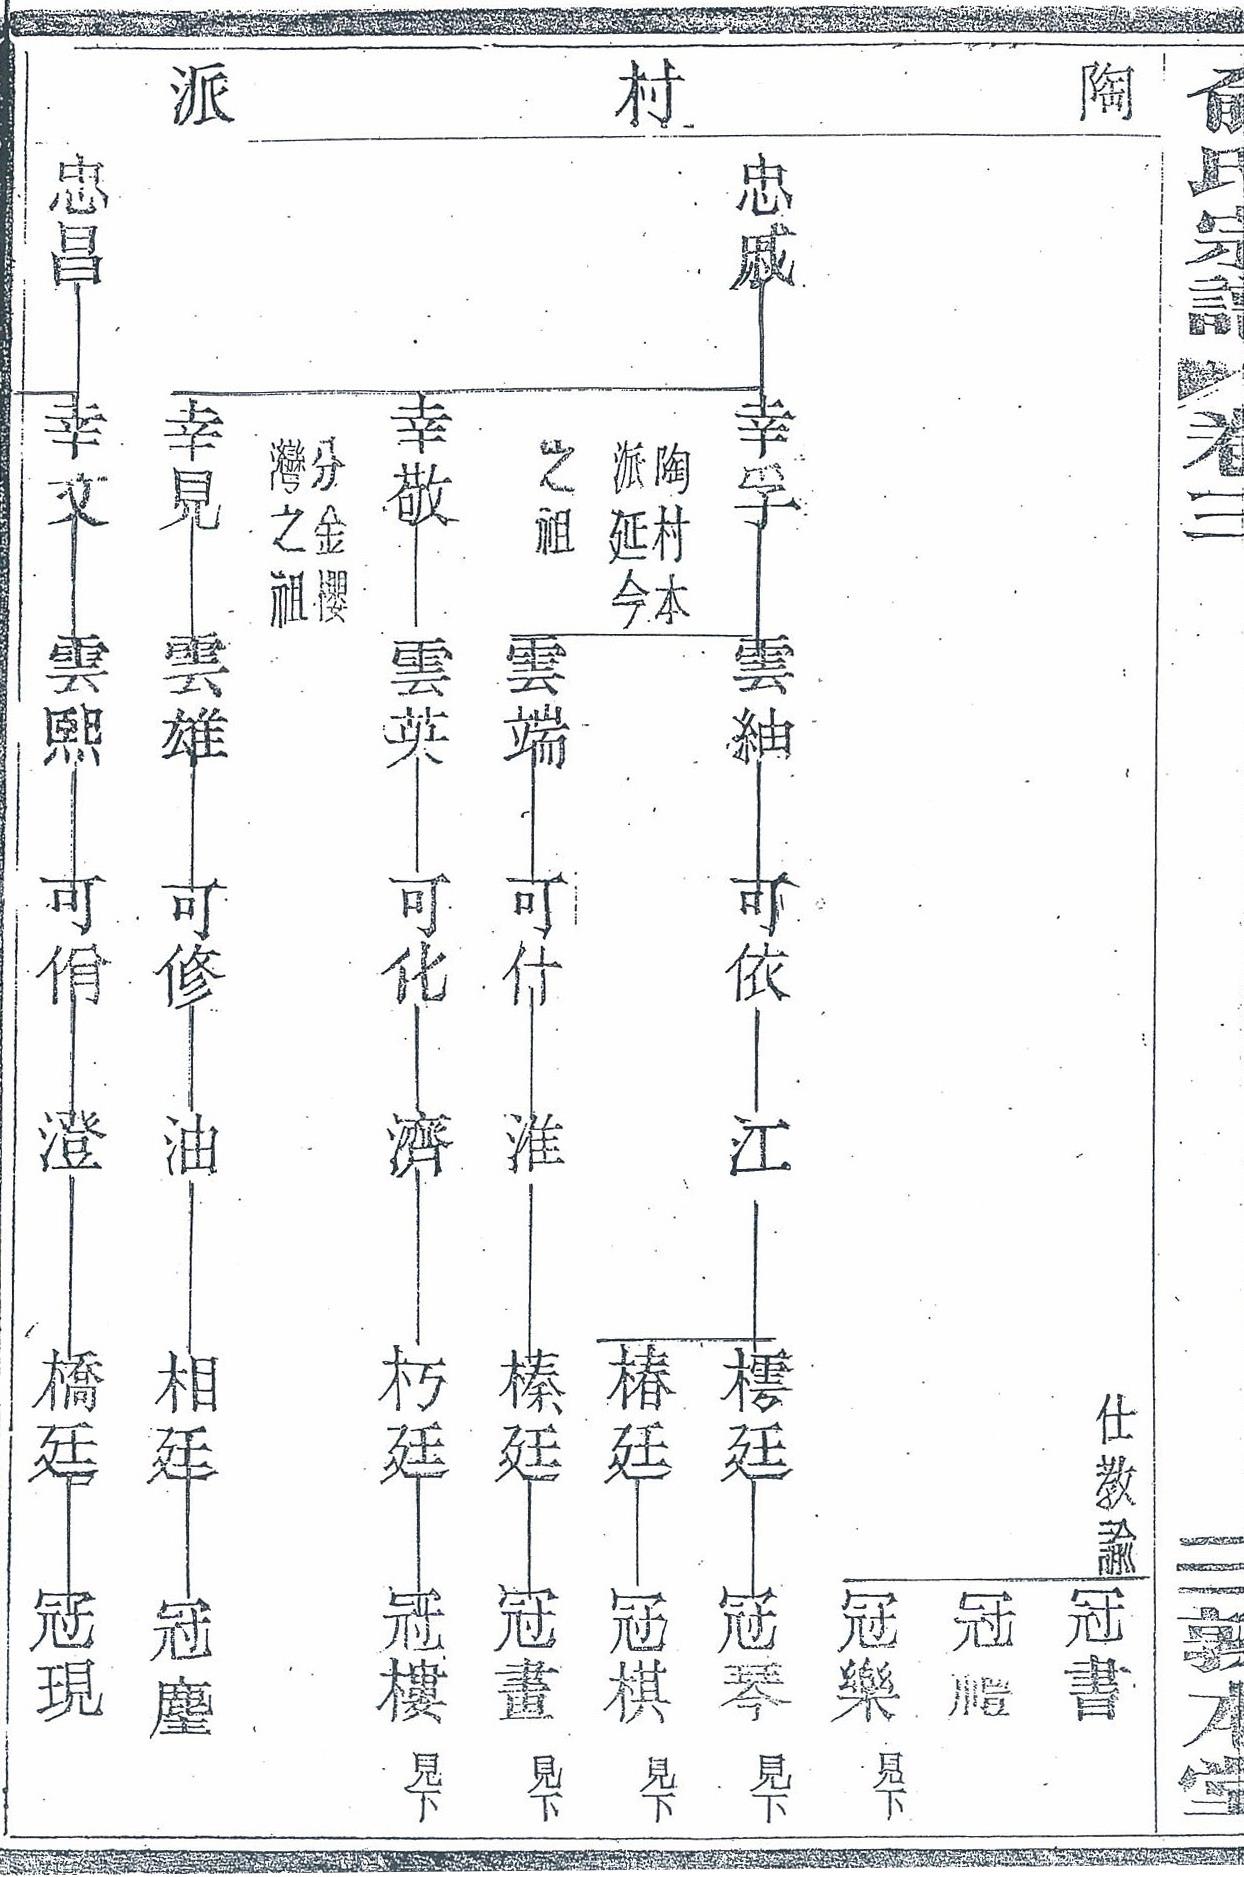 俞氏宗譜
卷二
三 敦本堂
陶村派
仕教諭
冠書
冠禮
冠樂
見下
忠戚
幸孚
陶村本
派延今
之祖
雲紬
可依
江
樗廷
冠琴
見下
椿廷
冠棋
見下
雲端
可什
淮
榛廷
冠畫
見下
幸敬
分金櫻
灣之祖
雲英
可化
濟
朽廷
冠樓
見下
幸見
雲雄
可修
油
相廷
冠塵
忠昌
幸文
雲熙
可佾
澄
橋廷
冠現